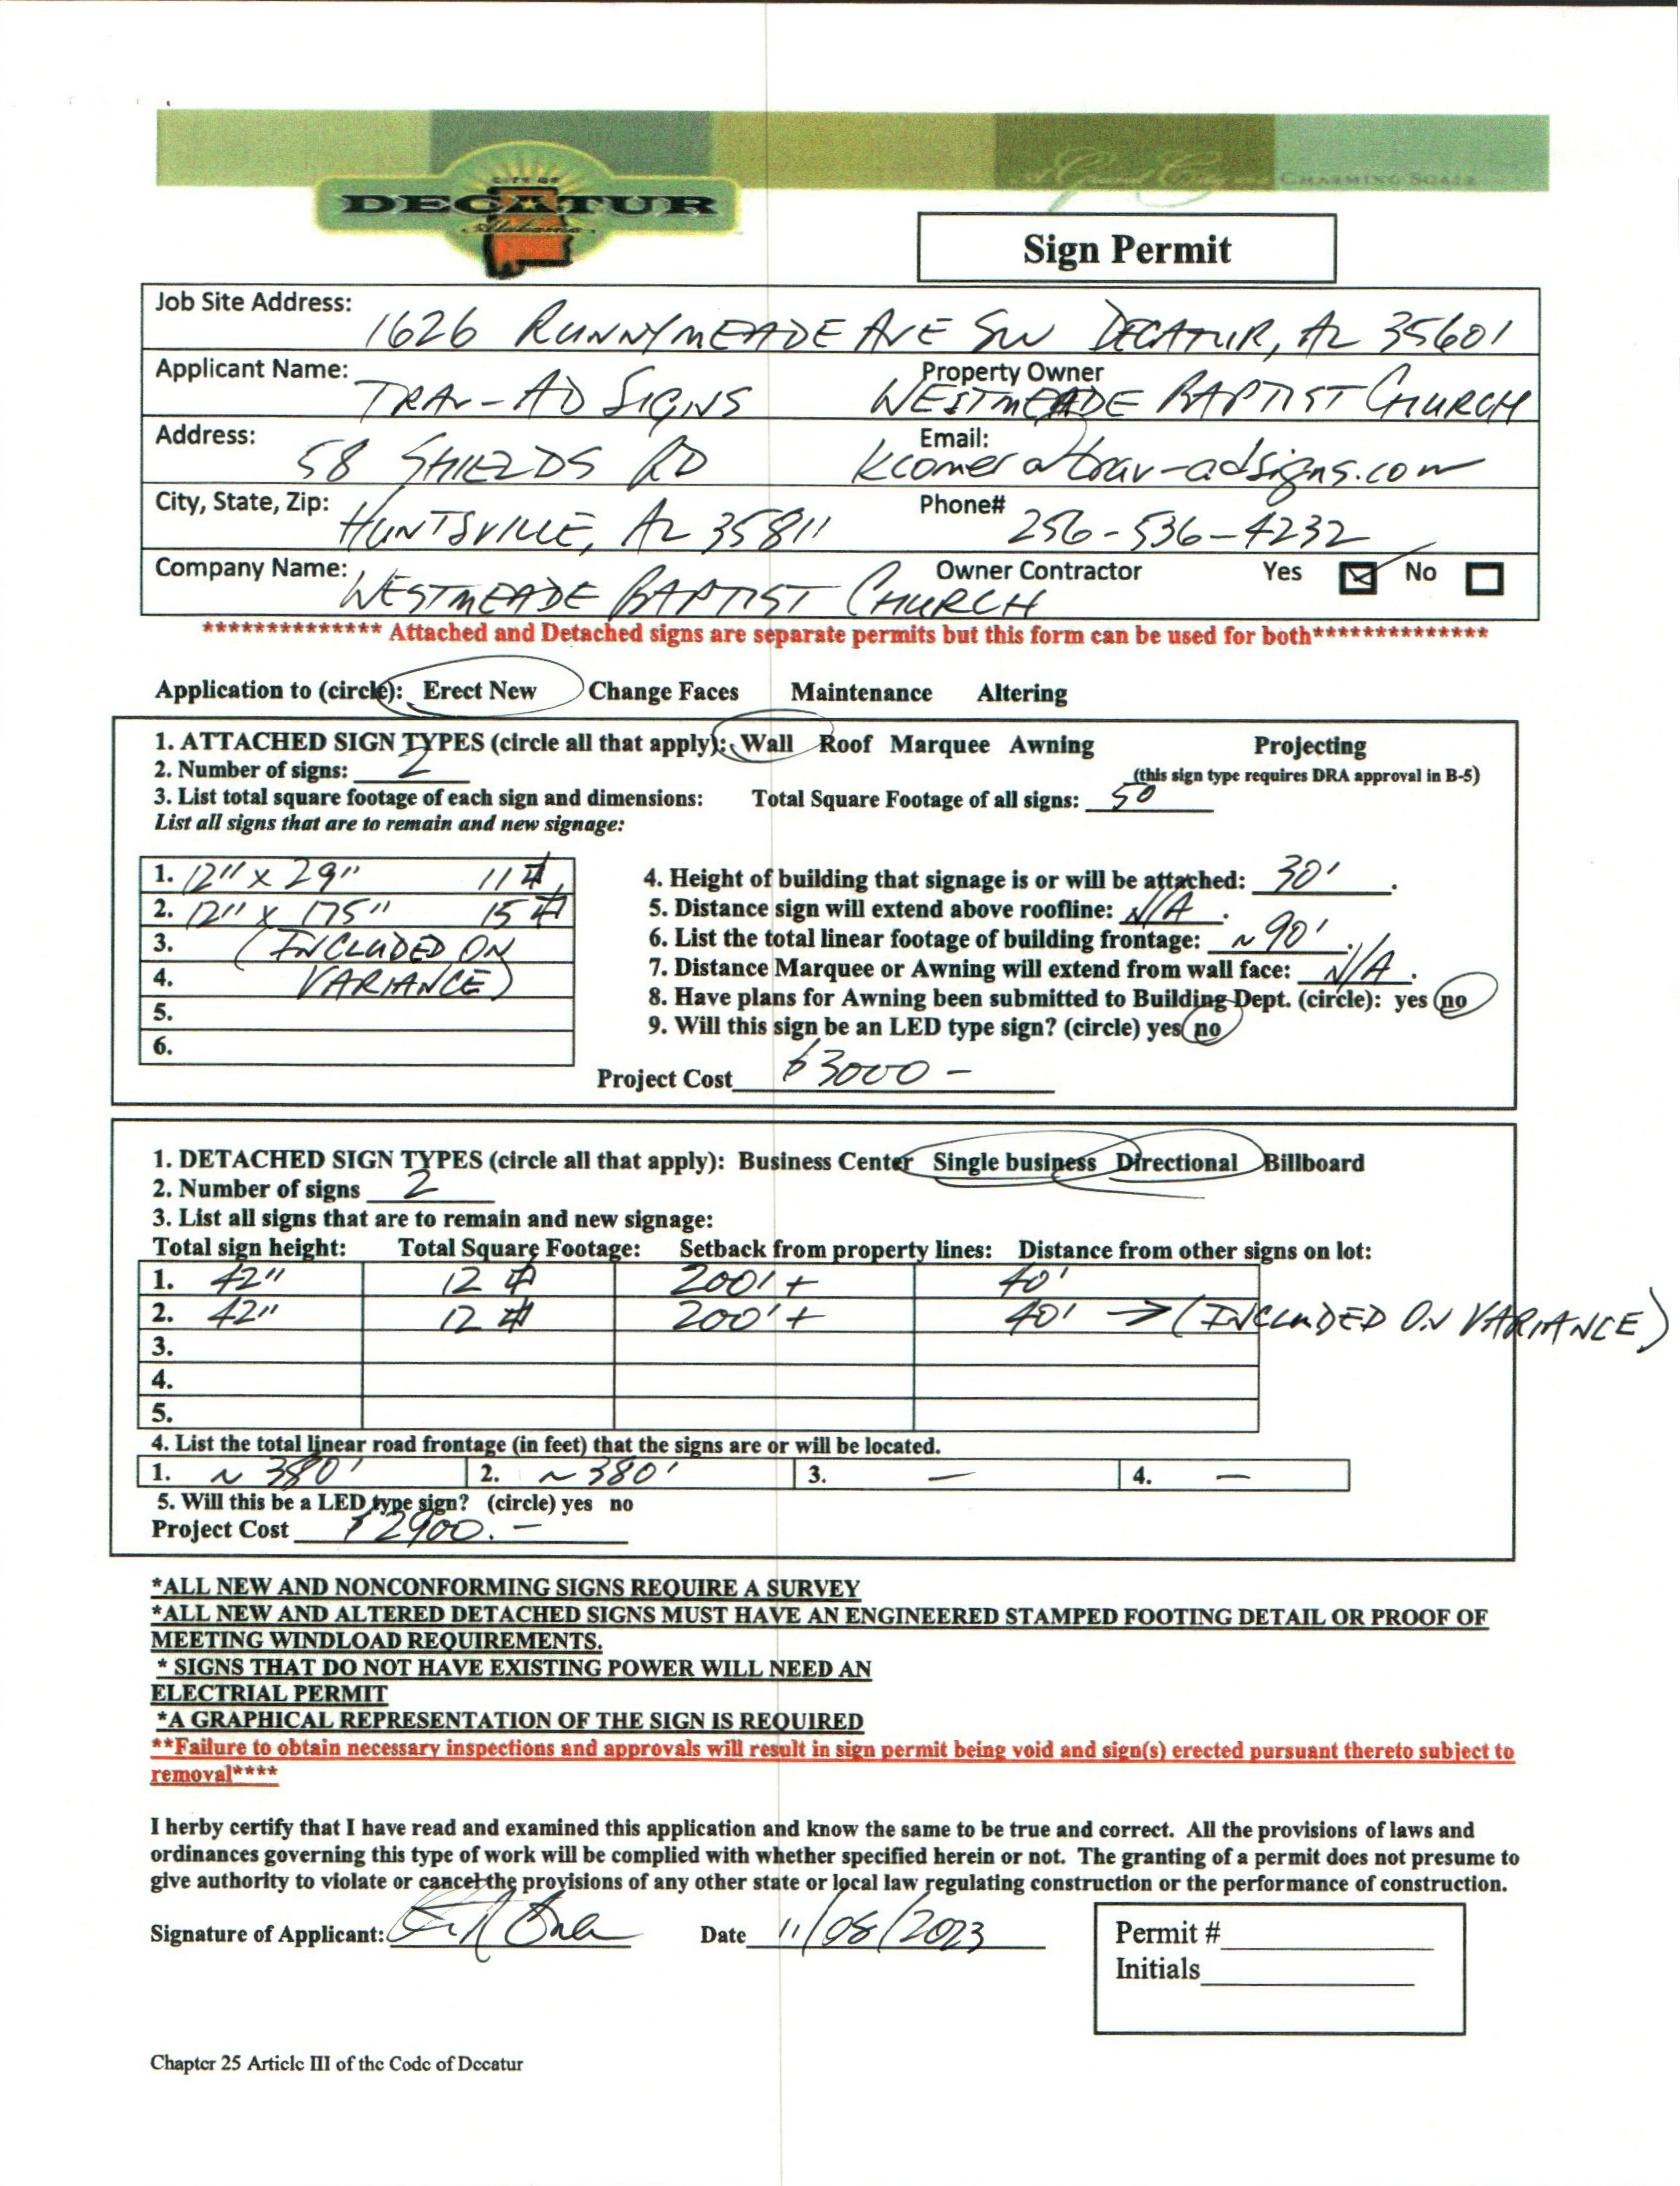 CITY OF
DECATUR
Alabama
A Grand City CHARMING SCALE
Sign Permit
Job Site Address: 1626 RUNNYMEADE AVE SW DECATUR, AL 35601
Applicant Name: TRAV-AD SIGNS Property Owner WESTMEADE BAPTIST CHURCH
Address: 58 SHIELDS RD Email: kcomer@trav-adsigns.com
City, State, Zip: HUNTSVILLE, AL 35811 Phone# 256-536-4232
Company Name: WESTMEADE BAPTIST CHURCH Owner Contractor Yes No
************** Attached and Detached signs are separate permits but this form can be used for both**************
Application to (circle): Erect New Change Faces Maintenance Altering
1. ATTACHED SIGN TYPES (circle all that apply): Wall Roof Marquee Awning Projecting
2. Number of signs: 2 (this sign type requires DRA approval in B-5)
3. List total square footage of each sign and dimensions: Total Square Footage of all signs: 50
List all signs that are to remain and new signage:
1. 12" x 29" 11 #
2. 12" x 175" 15 #
3. (INCLUDED ON
4. VARIANCE)
5.
6.
4. Height of building that signage is or will be attached: 30' .
5. Distance sign will extend above roofline: N/A .
6. List the total linear footage of building frontage: ~90' .
7. Distance Marquee or Awning will extend from wall face: N/A .
8. Have plans for Awning been submitted to Building Dept. (circle): yes no
9. Will this sign be an LED type sign? (circle) yes no
Project Cost $3000 -
1. DETACHED SIGN TYPES (circle all that apply): Business Center Single business Directional Billboard
2. Number of signs 2
3. List all signs that are to remain and new signage:
Total sign height: Total Square Footage: Setback from property lines: Distance from other signs on lot:
1. 42" 12 # 200'+ 40'
2. 42" 12 # 200'+ 40' → (INCLUDED ON VARIANCE)
3.
4.
5.
4. List the total linear road frontage (in feet) that the signs are or will be located.
1. ~ 380' 2. ~ 380' 3. — 4. —
5. Will this be a LED type sign? (circle) yes no
Project Cost $2900. -
*ALL NEW AND NONCONFORMING SIGNS REQUIRE A SURVEY
*ALL NEW AND ALTERED DETACHED SIGNS MUST HAVE AN ENGINEERED STAMPED FOOTING DETAIL OR PROOF OF
MEETING WINDLOAD REQUIREMENTS.
* SIGNS THAT DO NOT HAVE EXISTING POWER WILL NEED AN
ELECTRIAL PERMIT
*A GRAPHICAL REPRESENTATION OF THE SIGN IS REQUIRED
**Failure to obtain necessary inspections and approvals will result in sign permit being void and sign(s) erected pursuant thereto subject to
removal****
I herby certify that I have read and examined this application and know the same to be true and correct. All the provisions of laws and
ordinances governing this type of work will be complied with whether specified herein or not. The granting of a permit does not presume to
give authority to violate or cancel the provisions of any other state or local law regulating construction or the performance of construction.
Signature of Applicant: Date 11/08/2023
Permit #
Initials
Chapter 25 Article III of the Code of Decatur